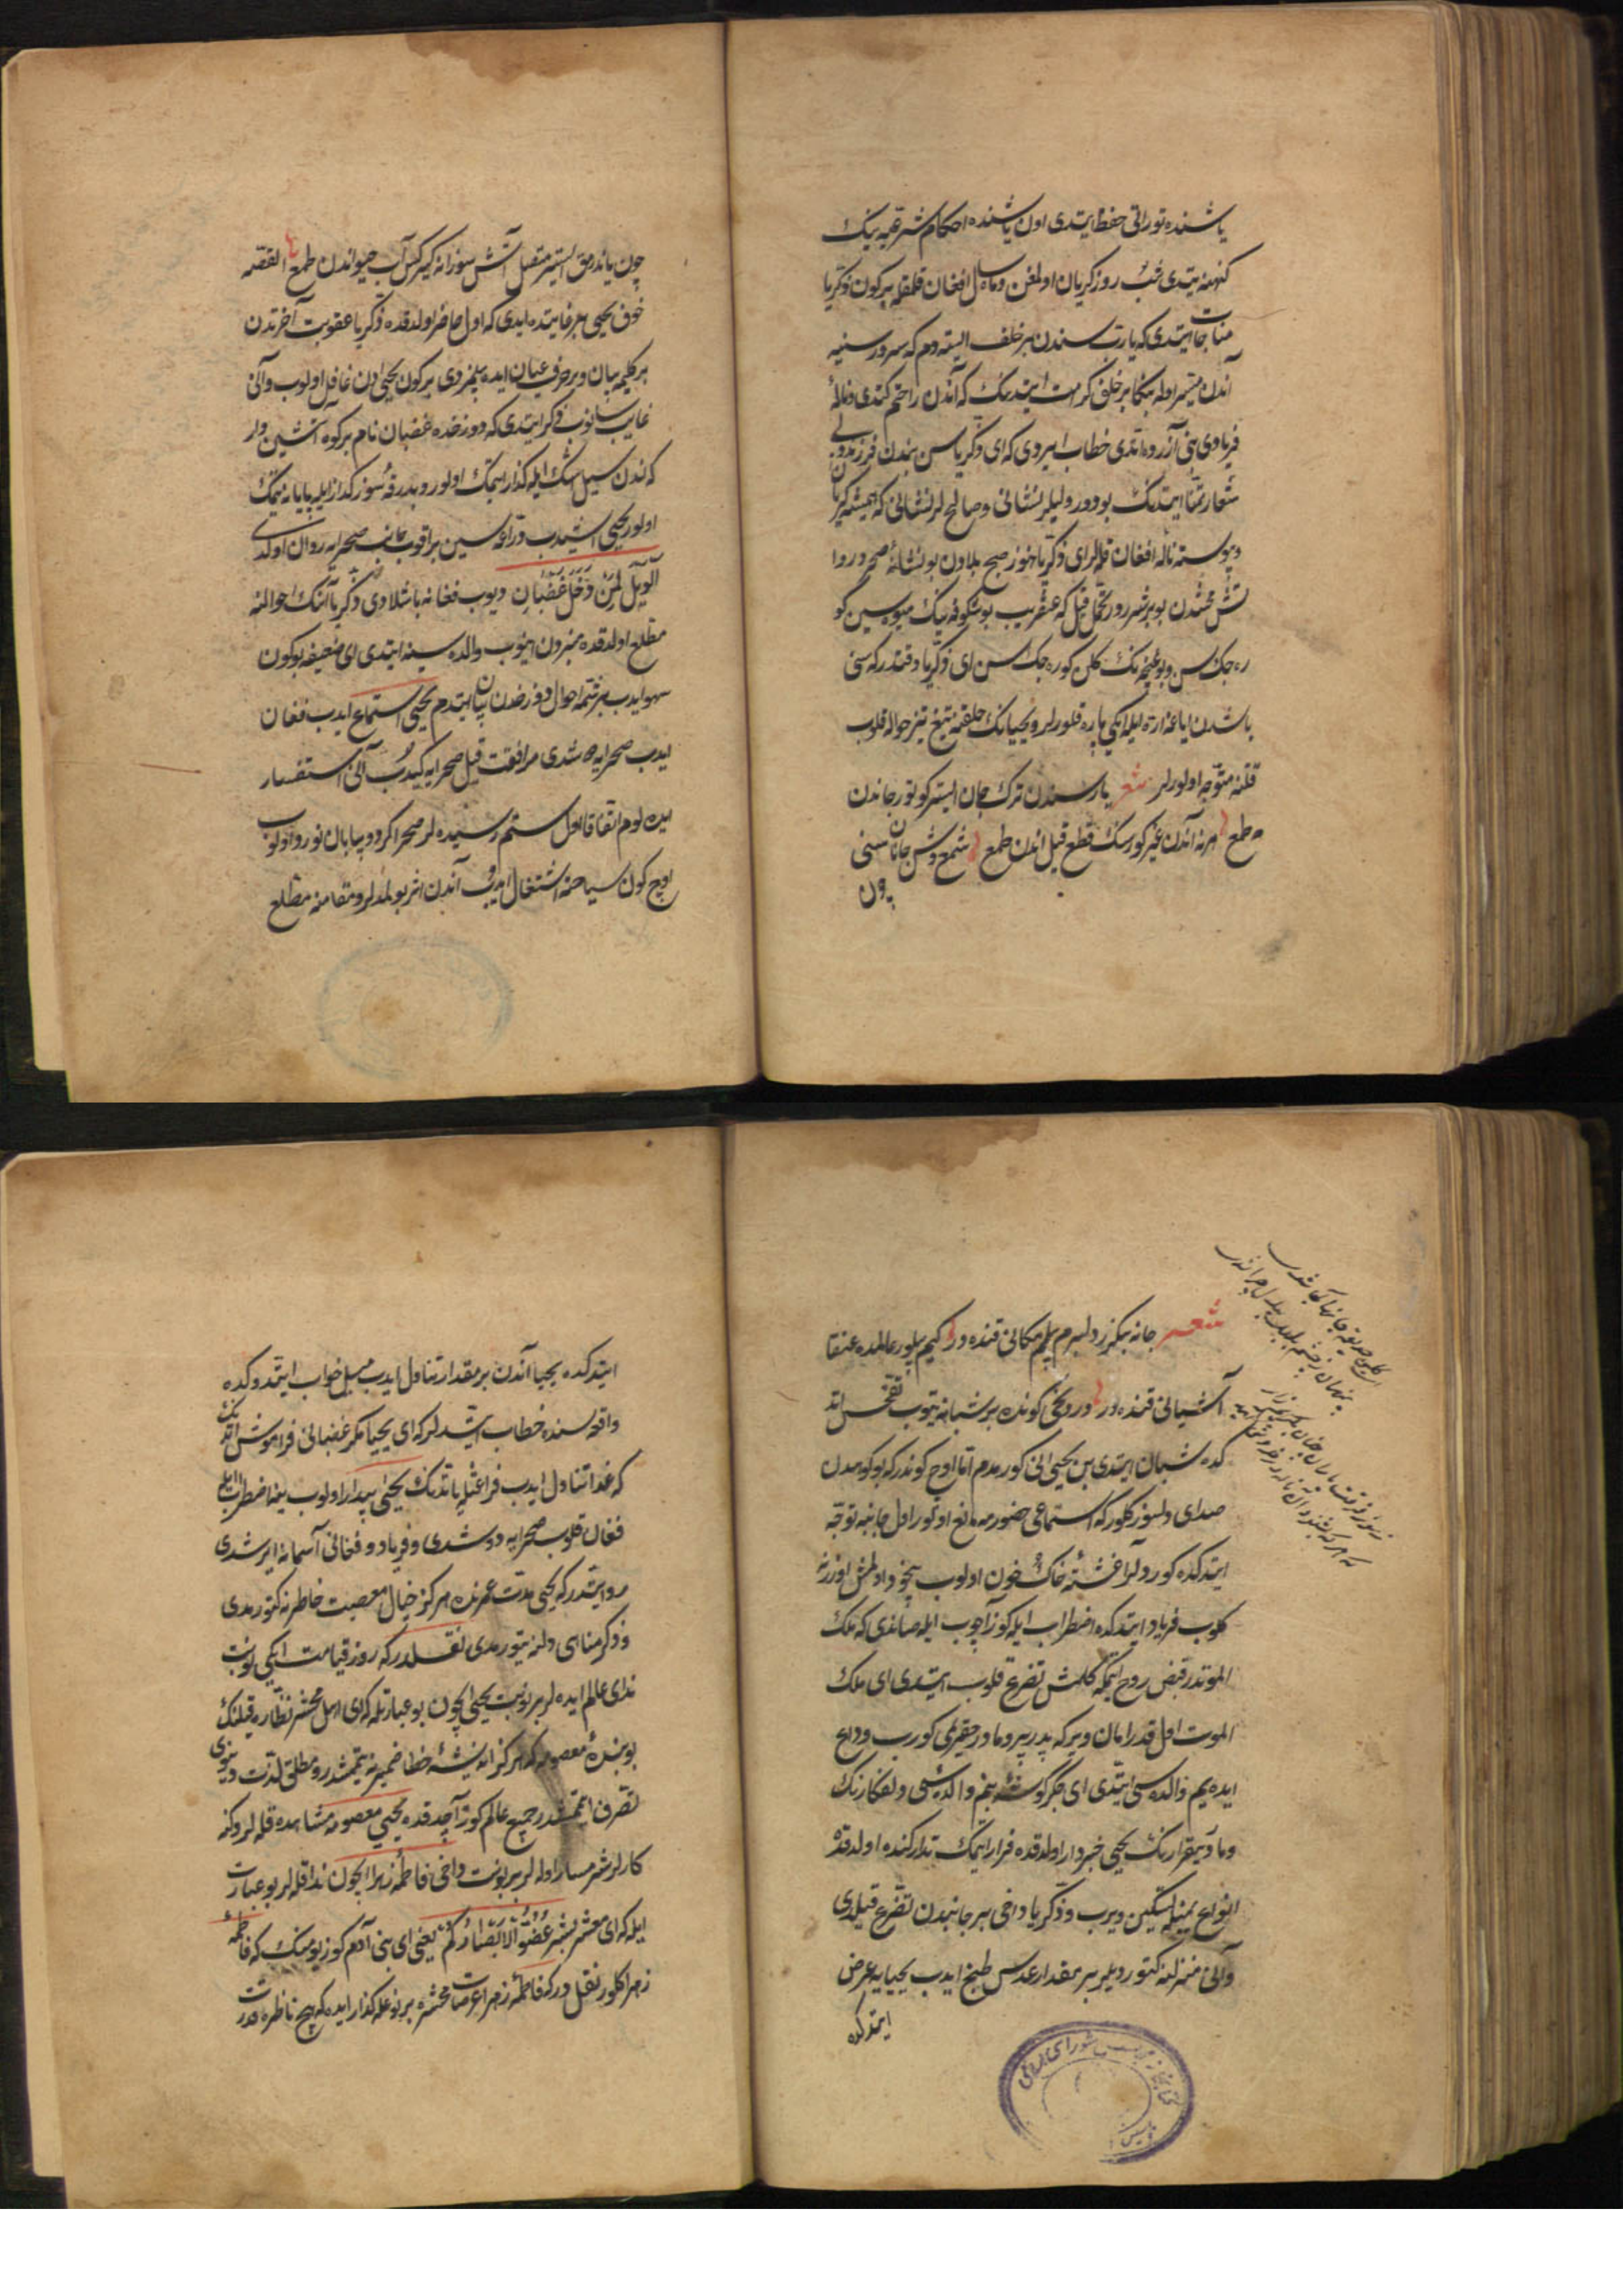 یاشنده توراتی حفظ ایتدی اون یاشنده احکام شرعیه نیک
کنهنه یتدی شب روز کریان اولغن وماه سال افغان قلمقله بیر کون ذکریا
مناجات ایتدی که یارب سندن بیر خلف ایستدوم که سرور سینه
آندن میسر اوله بنکا بیر خلق کرامت ایتدینک که آندن راحتم کتدی وناله
فریادی بنی آزرده ایتدی خطاب ایروی که ای ذکریا سن بندن فرزند ولی
شعار تمنا ایتدنک بودور ولیلر نشانی وصالح لر نشانی که همیشه کریان
وپیوسته ناله افغان قلهلر ای ذکریا هنوز صبح بلادن بو نشانهٔ
تش محنتدن بو بیر شرردر تحمل قیل که عنقریب بو شکوفه نینک میوه سین کو
ره جک سن وبو غنچه نک کلن کوره جک سن ای ذکریا وقتدر که سنی
باشدن ایاغه اره ایله ایکی پاره قلورلر ویحیانک حلقنه تیغ تیز حواله قلوب
قتلنه متوجه اولورلر شعر یار سندن ترک جان ایستر کوتور جاندن
طمع هر نه آندن غیر کورسک قطع قیل اندن طمع شمع وش جانان سنی
چون
چون یاندرمق ایستر متصل آتش سوزانه کیر کس آب حیواندن طمع القصه
خوف یحیی بیر غایتده ایدی که اول حاضر اولدقده ذکریا عقوبت آخرتدن
بر کلمه بیان وبر حرف عیان ایده بیلمزدی بیر کون یحیی ادن غافل اولوب وآنی
غایب سانوب ذکر ایتدی که دوزخده غضبان نام بر کوه آتشین وار
که اندن سیل اشک ایله کذار ایتمک اولور وبدرقهٔ سوز کداز ایله پایانه یتمک
اولور یحیی اشیدب ردائی سین براقوب جانب صحرایه روان اولدی
الویل لمن دخل غضبان دیوب فغانه باشلادی ذکریا آننک احوالنه
مطلع اولدقده منبردن اینوب والده سینه ایتدی ای ضعیفه بو کون
سهو ایدب بیر شمه احوال دوزخدن بیان ایتدم یحیی استماع ایدب فغان
ایدب صحرایه دوشدی مرافقت قیل صحرایه کیدوب آنی استفسار
ایده لوم اتفاقا اول ستم رسیده لر صحرا کرد وبیابان نورد اولوب
اوچ کون سیاحته اشتغال ایدوب آندن اثر بولمدلر ومقامنه مطلع
شعر جانه بیکزر دلبرم بیلم مکانی قنده در کیم بیلور عالمده عنقا
آشیانی قنده در اوچونجی کونده بر شبانه یتوب تفحص اتد
کده شبان ایتدی بن یحیی انی کورمدم اما اوچ کوندر که بو کوهدن
صدای دلسوز کلور که استماعی حضورمه مانع اولور اول جانبه توجه
ایتدکده کوردلر آغشتهٔ خاک خون اولوب بیخود اولمش اوزرنه
کلوب فریاد ایتدکده اضطراب ایله کوز آچوب ایله صاندی که ملک
الموتدر قبض روح ایتمکه کلمش تضرع قلوب ایتدی ای ملک
الموت اول قدر امان ویر که پدر پیر ومادر حقیرمی کورب وداع
ایده یم والده سی ایتدی ای جکر کوشه بنم والدهٔ دلفکارنک
ومادر بیقرارنک یحیی خبردار اولدقده فرار ایتمک تدارکنده اولدقده
انواع یمینله تسکین ویرب وذکریا داخی بیر جانبدن تضرع قیلدی
وآنی منزلنه کتوردیلر بیر مقدار عدس طبخ ایدب یحیایه عرض
ایتدکده
ایتدکده یحیا آندن بر مقدار تناول ایدب میل خواب ایتدوکده
واقعه سنده خطاب اشیدلر که ای یحییا مکر غضبانی فراموش اتدنک
که غذا تناول ایدب فراغتله یاتدنک یحیی بیدار اولوب ینه اضطراب ایله
فغان قلوب صحرایه دوشدی وفریاد وفغانی آسمانه ایرشدی
روایتدر که یحیی مدت عمرنده هرکز خیال معصیت خاطرنه کتورمدی
وذکر مناهی دلنه یتورمدی نقلدر که روز قیامت ایکی نوبت
ندای عالم ایده لر بیر نوبت یحیی ایچون بو عبارتله که ای اهل محشر نظاره قیلنک
بو بندهٔ معصومه که هرکز اندیشهٔ خطا ضمیرنه یتمشدر ومطلق لذت دنیوی
تصرف ایتمشدر جمیع عالم کوز آچدقده یحیی معصومه مشاهده قله لر وکنه
کارلر شرمسار اوله لر بیر نوبت داخی فاطمهٔ زهرا ایچون ندا قله لر بو عبارت
ایله که ای معشر بشر غضوا الابصارکم یعنی ای بنی آدم کوز یومنک که فاطمهٔ
زهرا کلور نقل در که فاطمهٔ زهرا عرصات محشره بر نوعله کذار ایده که هیچ ناظره قدرت